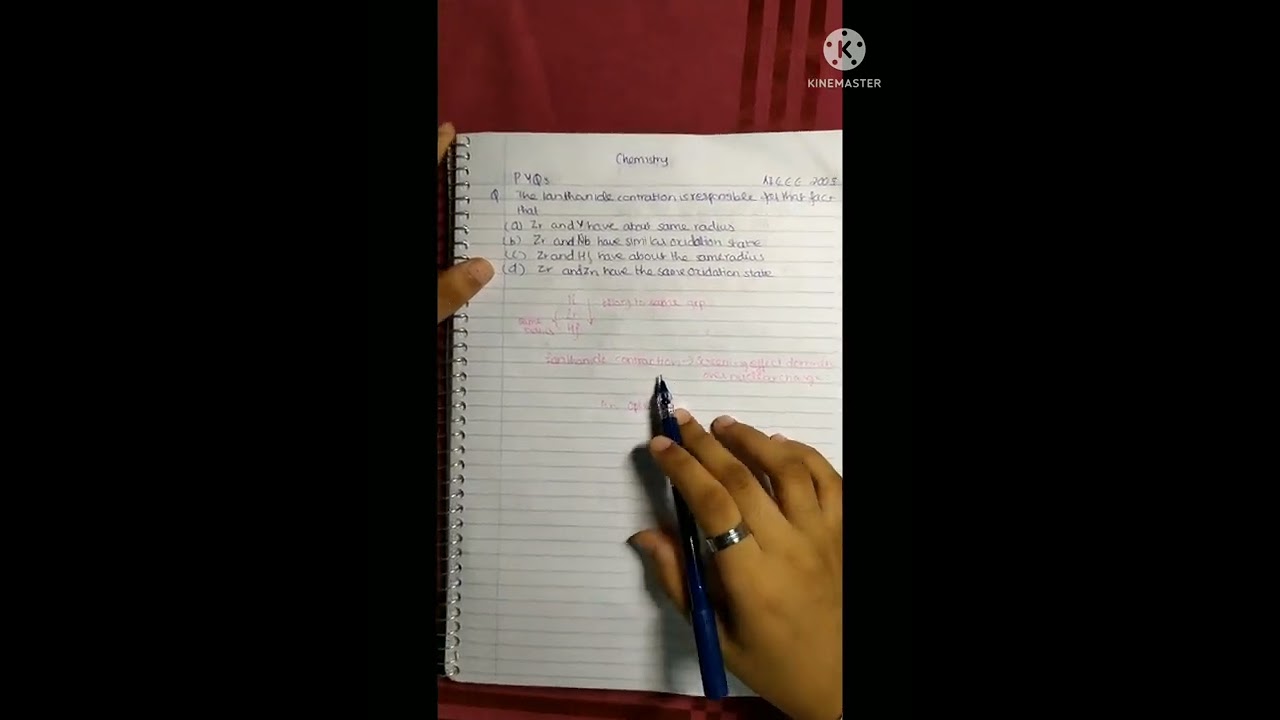 KINEMASTER
Chemistry
PYQs AIEEE 2005
Q The lanthanide contration is responsible for that fact
that
(a) Zr and Y have about same radius
(b) Zr and Nb have similar oxidation state
(c) Zr and Hf have about the same radius
(d) Zr and Zn have the same oxidation state
Ti belong to same grp
Zr
same Hf
lanthanide contraction → Screening effect
nuclear charge